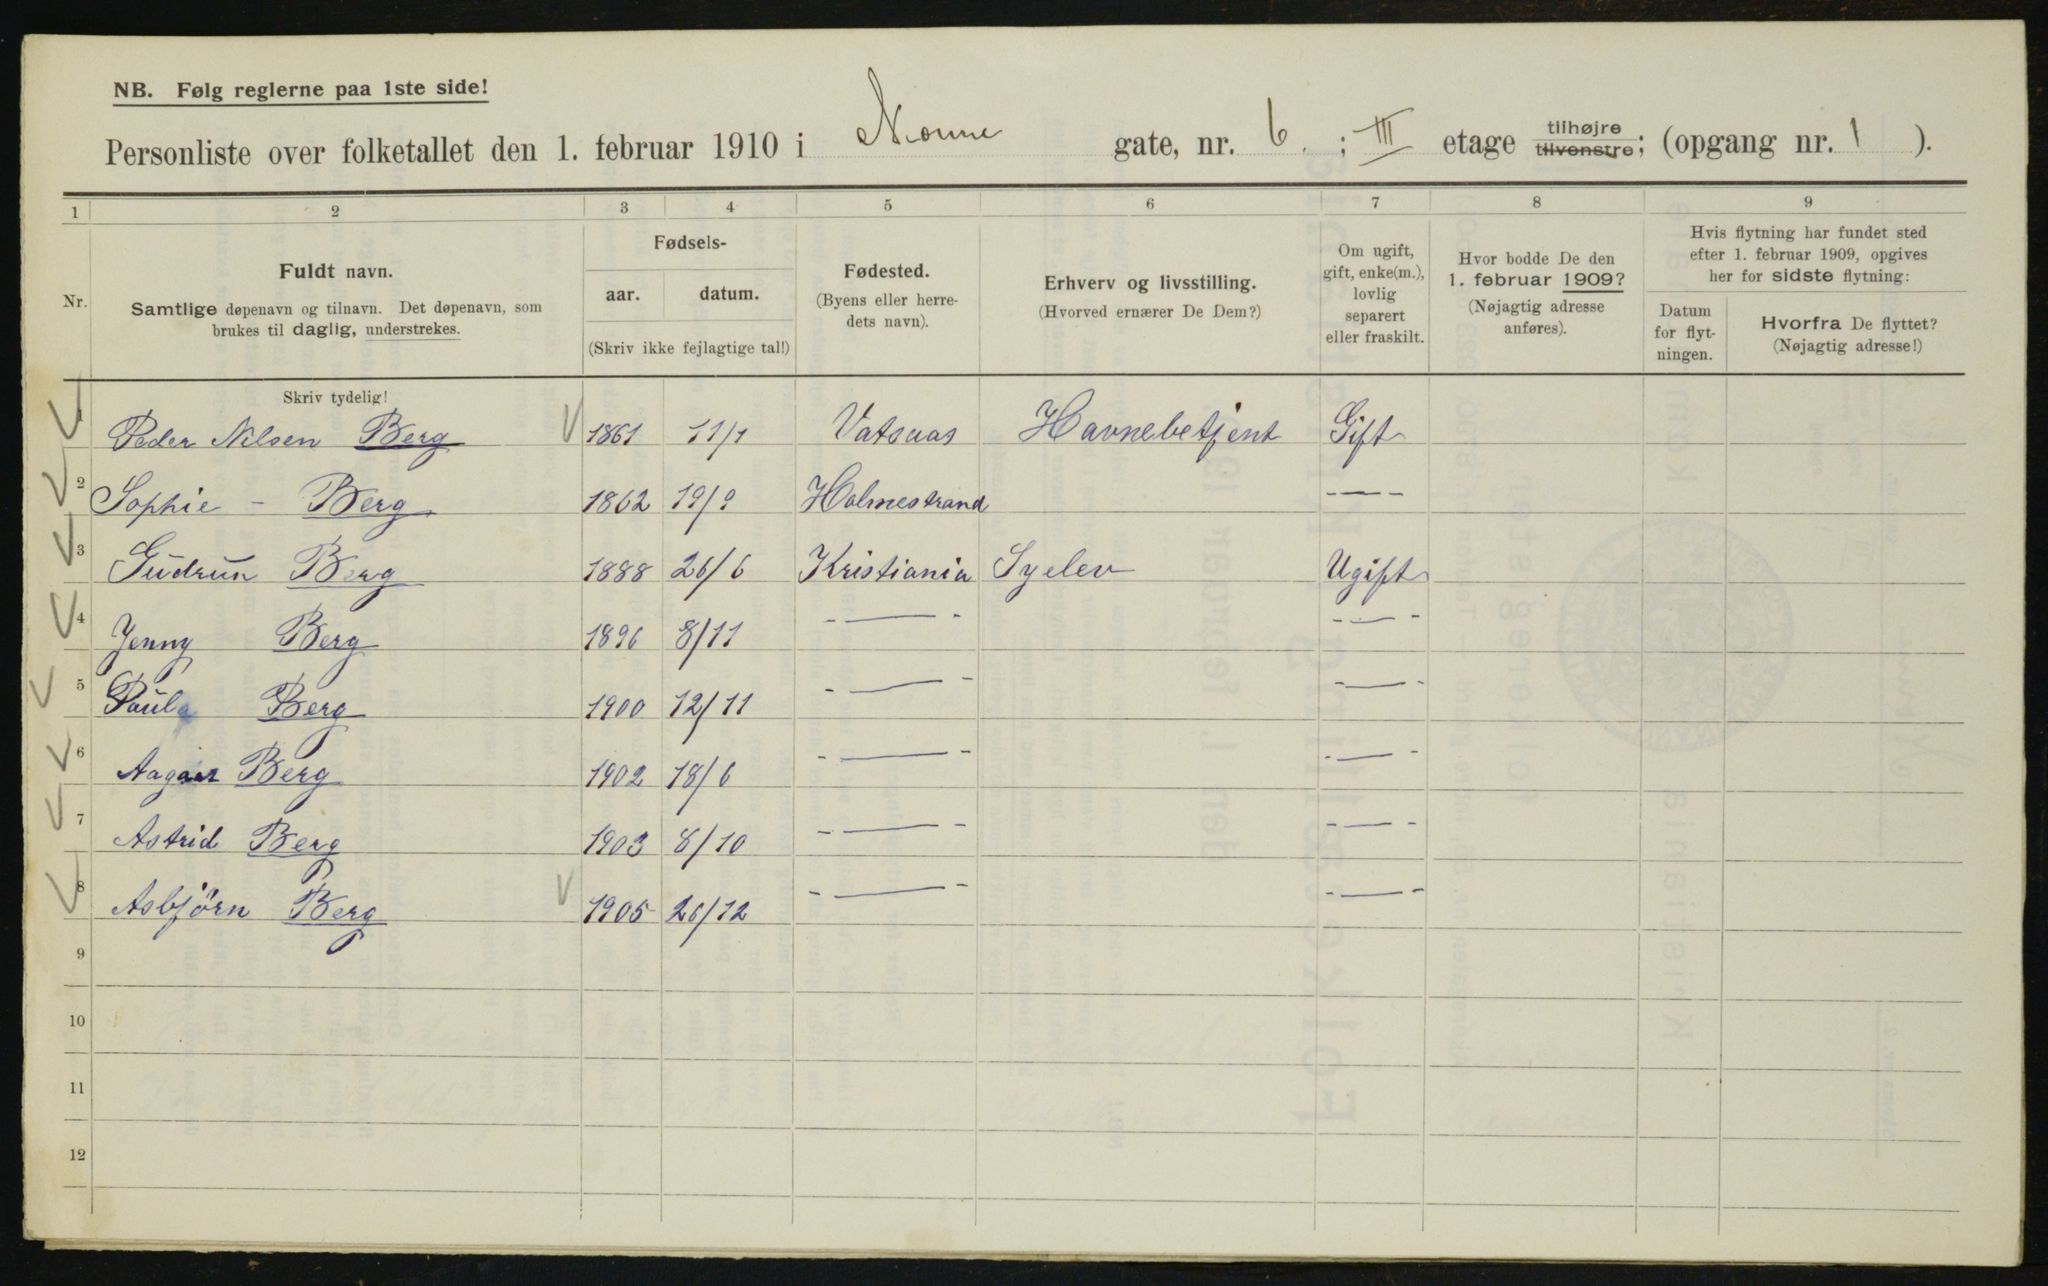 NB. Følg reglerne paa 1ste side!
Personliste over folketallet den 1. februar 1910 i Nonne gate, nr. 6. ; III etage tilhøjre tilvenstre; (opgang nr. 1 ).
1 2 3 4 5 6 7 8 9
Nr.
Fuldt navn.
Samtlige døpenavn og tilnavn. Det døpenavn, som
brukes til daglig, understrekes.
Fødsels-
aar. datum.
(Skriv ikke fejlagtige tal!)
Fødested.
(Byens eller herre-
dets navn).
Erhverv og livsstilling.
(Hvorved ernærer De Dem?)
Om ugift,
gift, enke(m.),
lovlig
separert
eller fraskilt.
Hvor bodde De den
1. februar 1909?
(Nøjagtig adresse
anføres).
Hvis flytning har fundet sted
efter 1. februar 1909, opgives
her for sidste flytning:
Datum
for flyt-
ningen.
Hvorfra De flyttet?
(Nøjagtig adresse!)
Skriv tydelig!
1 Peder Nilsen Berg 1861 11/1 Vatsaas Havnebetjent Gift
2 Sophie - Berg 1862 19/9 Holmestrand - — -
3 Gudrun Berg 1888 26/6 Kristiania Syelev Ugift
4 Jenny Berg 1896 8/11 - — - - — -
5 Paula Berg 1900 12/11 - — - - — -
6 Berg 1902 18/6 - — - - — -
7 Astrid Berg 1903 8/10 - — - - — -
8 Asbjörn Berg 1905 26/12 - — - - — -
9
10
11
12